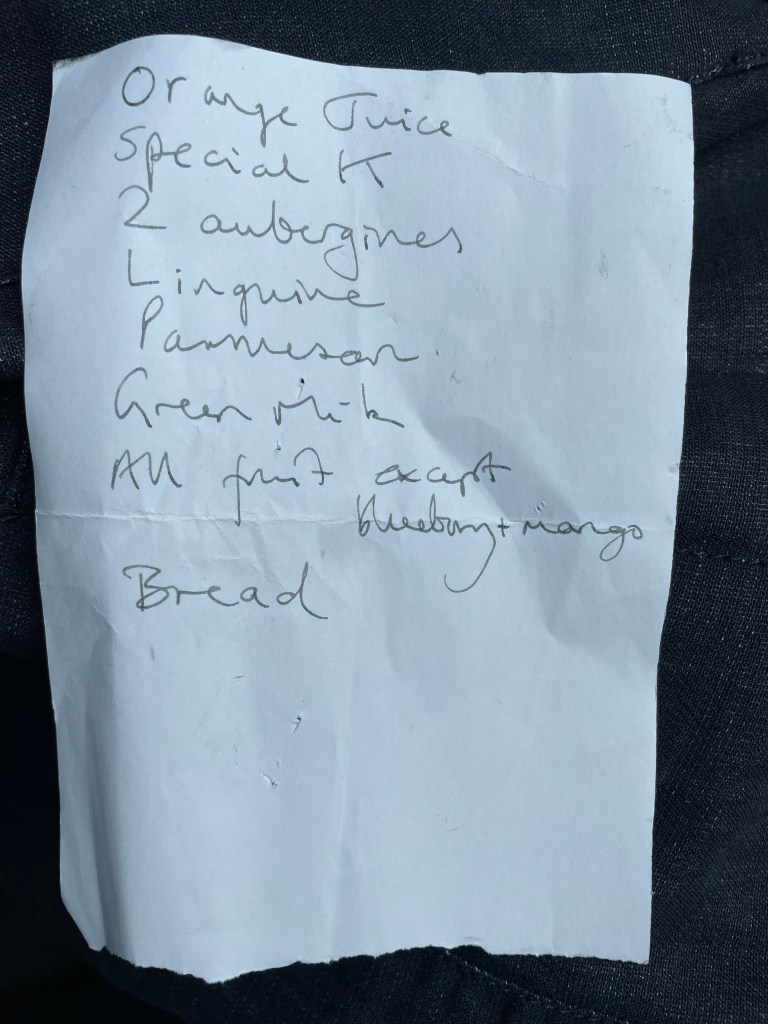 Orange Juice
Special K
2 aubergines
Linguine
Parmesan
Green Milk
All fruit except
blueberry + mango
Bread